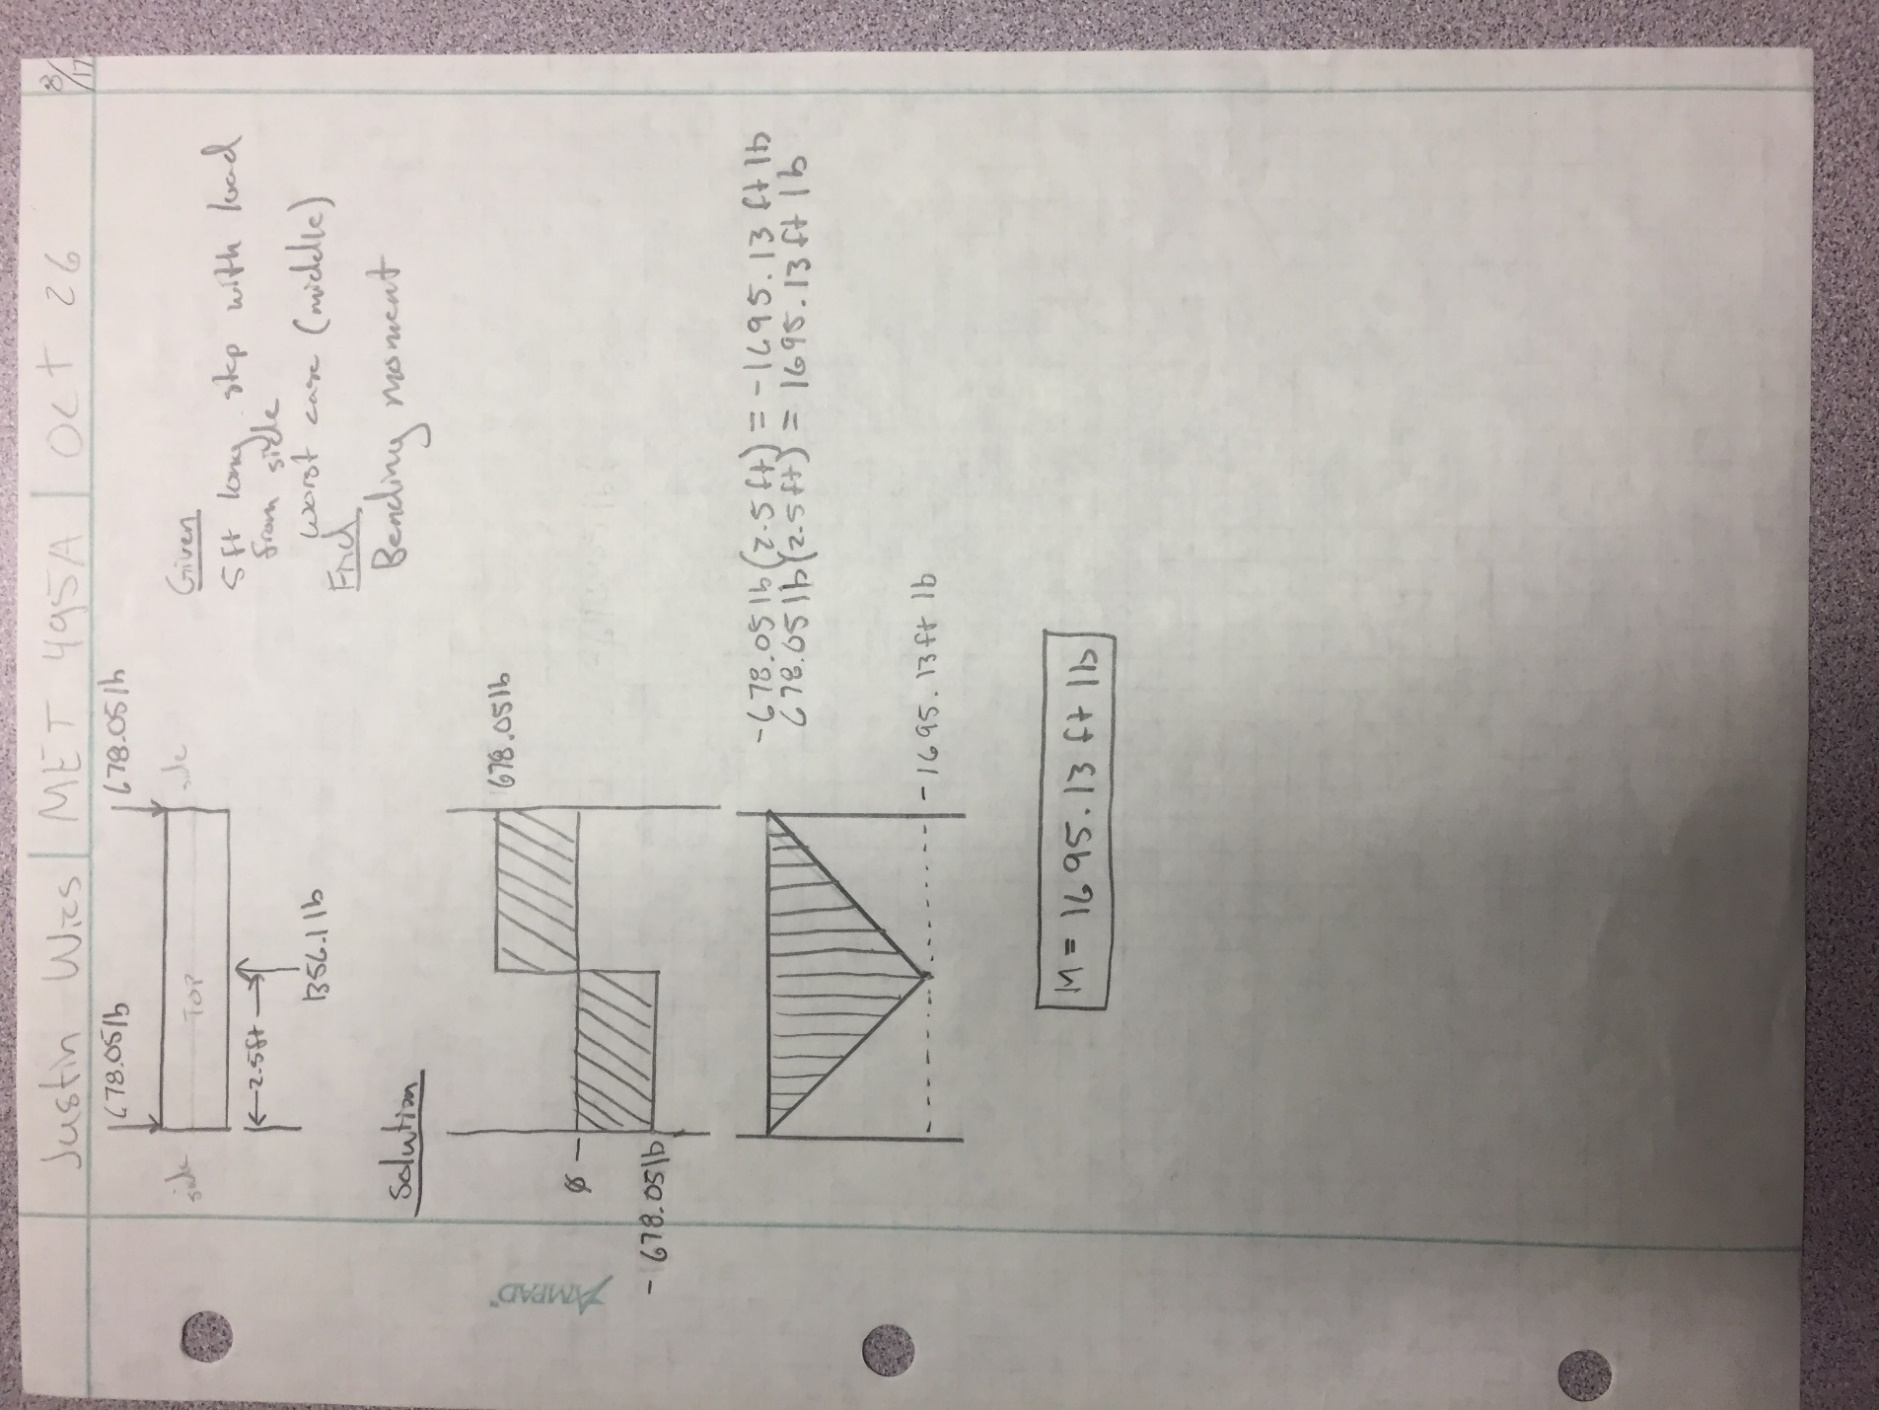 Justin Wies | MET 495A | Oct 26
8/17
678.05lb
678.05lb
side
TOP
side
2.5ft
1356.1lb
Given
5ft long step with load
from side
worst case (middle)
Find
Bending moment
Solution
678.05lb
ø
-678.05lb
-678.05lb(2.5ft) = -1695.13 ft lb
678.05lb(2.5ft) = 1695.13 ft lb
-1695.13ft lb
M = 1695.13 ft lb
AMPAD